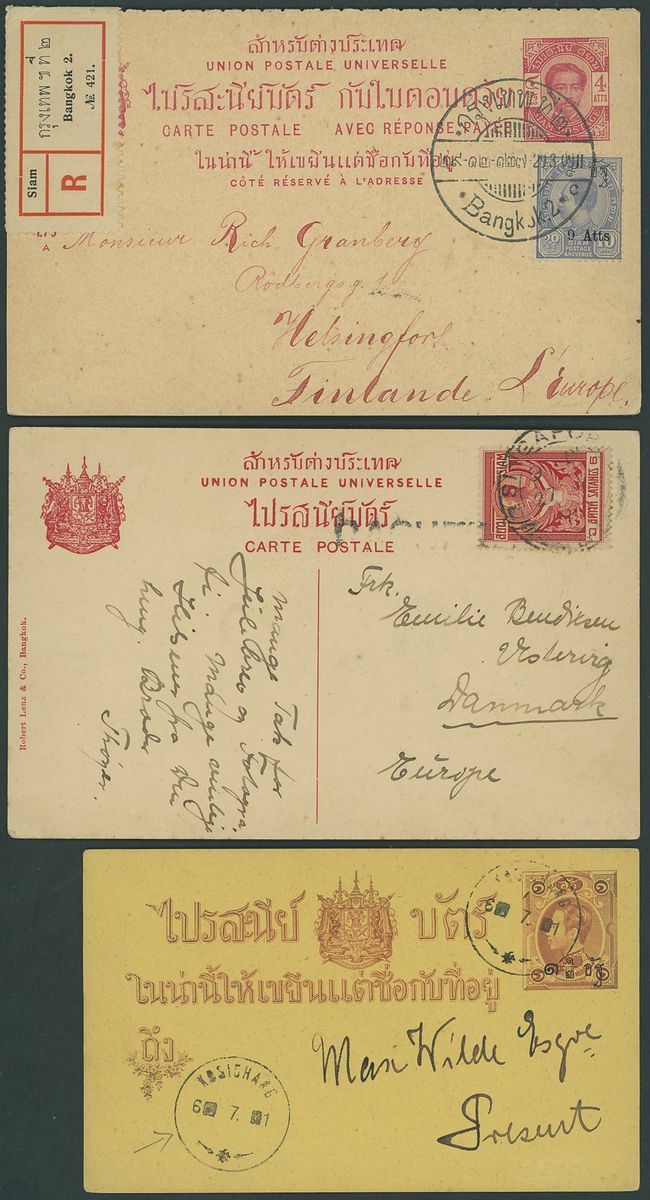 Siam
R
กรุงเทพ ที่ ๒
Bangkok 2.
№ 421.
สำหรับต่างประเทศ
UNION POSTALE UNIVERSELLE
ไปรสะนียบัตร์ กับใบตอบด้วย
CARTE POSTALE AVEC RÉPONSE PAYÉE
ในน่านี้ ให้เขยีนแต่ชื่อกับที่อยู่
CÔTÉ RÉSERVÉ À L'ADRESSE
4
ATTS
Bangkok 2
9 Atts
SIAM
POSTAGE
& REVENUE
À Monsieur Rich. Granberg
Rödbergsg. 1
Helsingfors
Finlande. L'Europe.
สำหรับต่างประเทศ
UNION POSTALE UNIVERSELLE
ไปรสนียบัตร์
CARTE POSTALE
SIAM
6 SATANGS
Robert Lenz & Co., Bangkok.
Mange Tak for
Julebrev og Fotogra
fi. Mange venlige
Hilsener fra Din
heng. Broder
Frk.
Emilie Bendixen
Vestervig
Danmark
Europe
ไปรสนีย์ บัตร์
ในน่านี้ให้เขยีนแต่ชื่อกับที่อยู่
ถึง
6 7. 1
KOSICHANG
6 7. 1
Max Wilde Esqre
Present